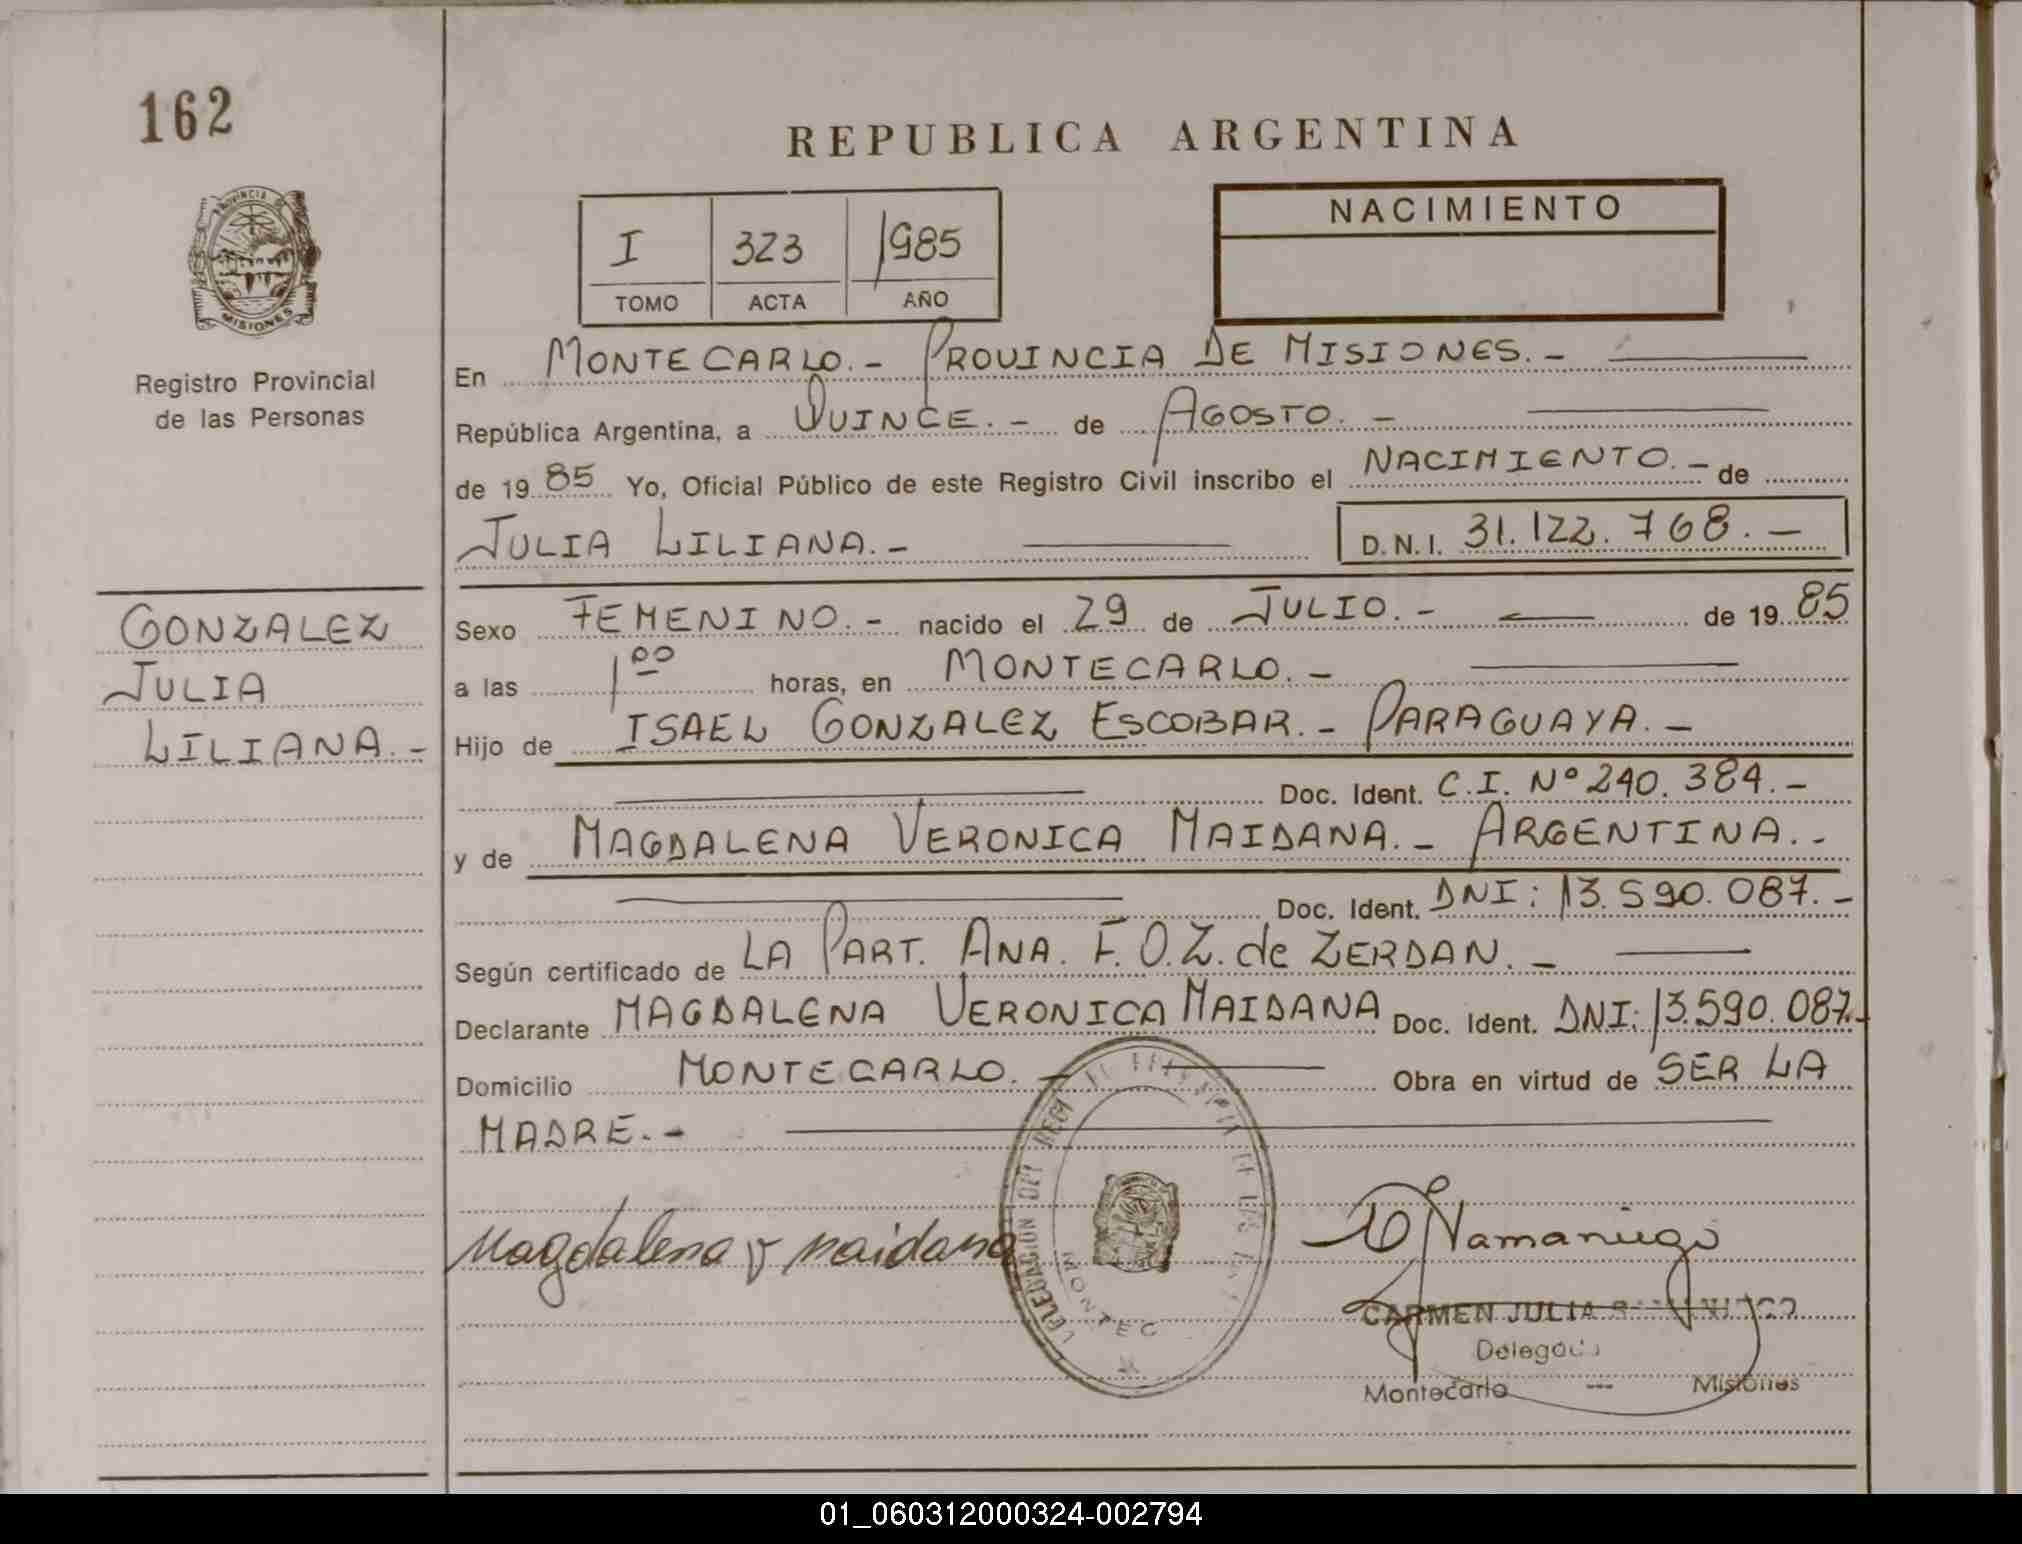 162
PROVINCIA DE
MISIONES
Registro Provincial
de las Personas
GONZALEZ
JULIA
LILIANA.-
REPUBLICA ARGENTINA
I 323 1985
TOMO ACTA AÑO
NACIMIENTO
En MONTECARLO.- PROVINCIA DE MISIONES.-
República Argentina, a QUINCE.- de AGOSTO.-
de 1985 Yo, Oficial Público de este Registro Civil inscribo el NACIMIENTO.- de
JULIA LILIANA.- D.N.I. 31.122.768.-
Sexo FEMENINO.- nacido el 29 de JULIO.- de 1985
a las 1 00 horas, en MONTECARLO.-
Hijo de ISAEL GONZALEZ ESCOBAR.- PARAGUAYA.-
Doc. Ident. C.I. Nº 240.384.-
y de MAGDALENA VERONICA MAIDANA.- ARGENTINA.-
Doc. Ident. DNI: 13.590.087.-
Según certificado de LA PART. ANA. F.O.Z. de ZERDAN.-
Declarante MAGDALENA VERONICA MAIDANA Doc. Ident. DNI: 13.590.087.-
Domicilio MONTECARLO.- Obra en virtud de SER LA
MADRE.-
Magdalena v maidana
DELEGACION DEL
MONTEC
CARMEN JULIA
Delegada
Montecarlo --- Misiones
01_060312000324-002794